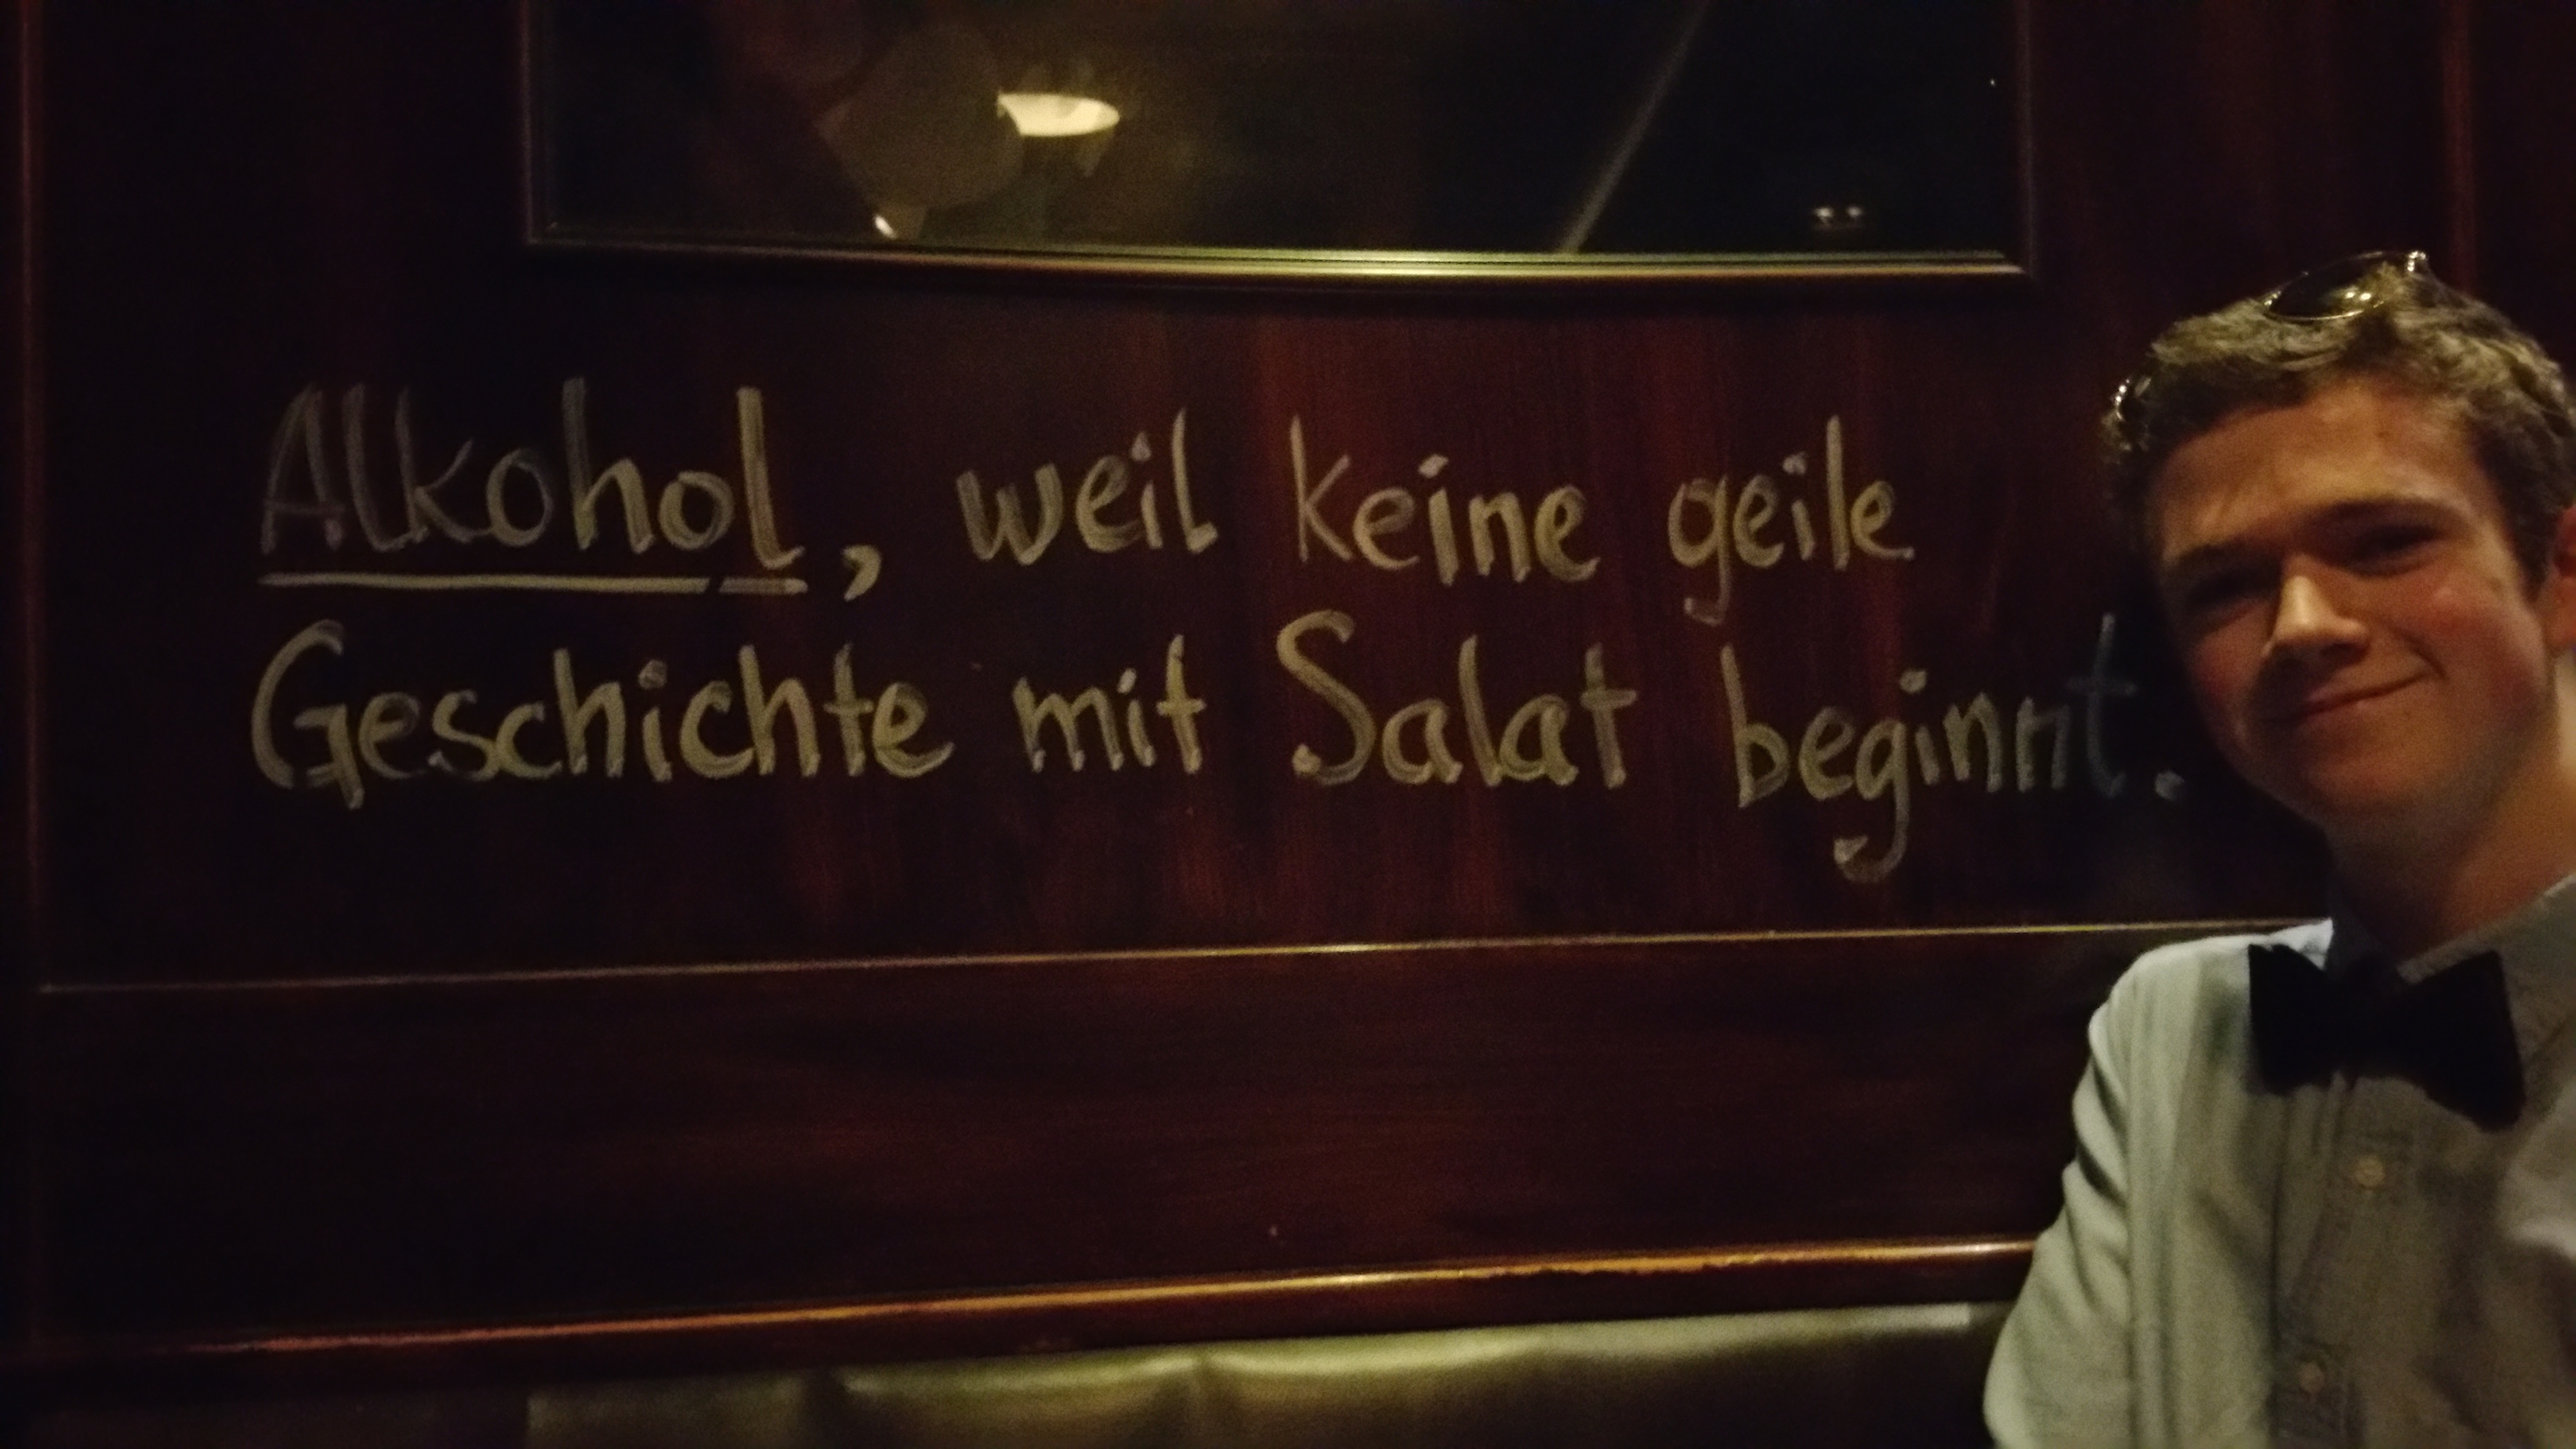 Alkohol, weil keine geile
Geschichte mit Salat beginnt.